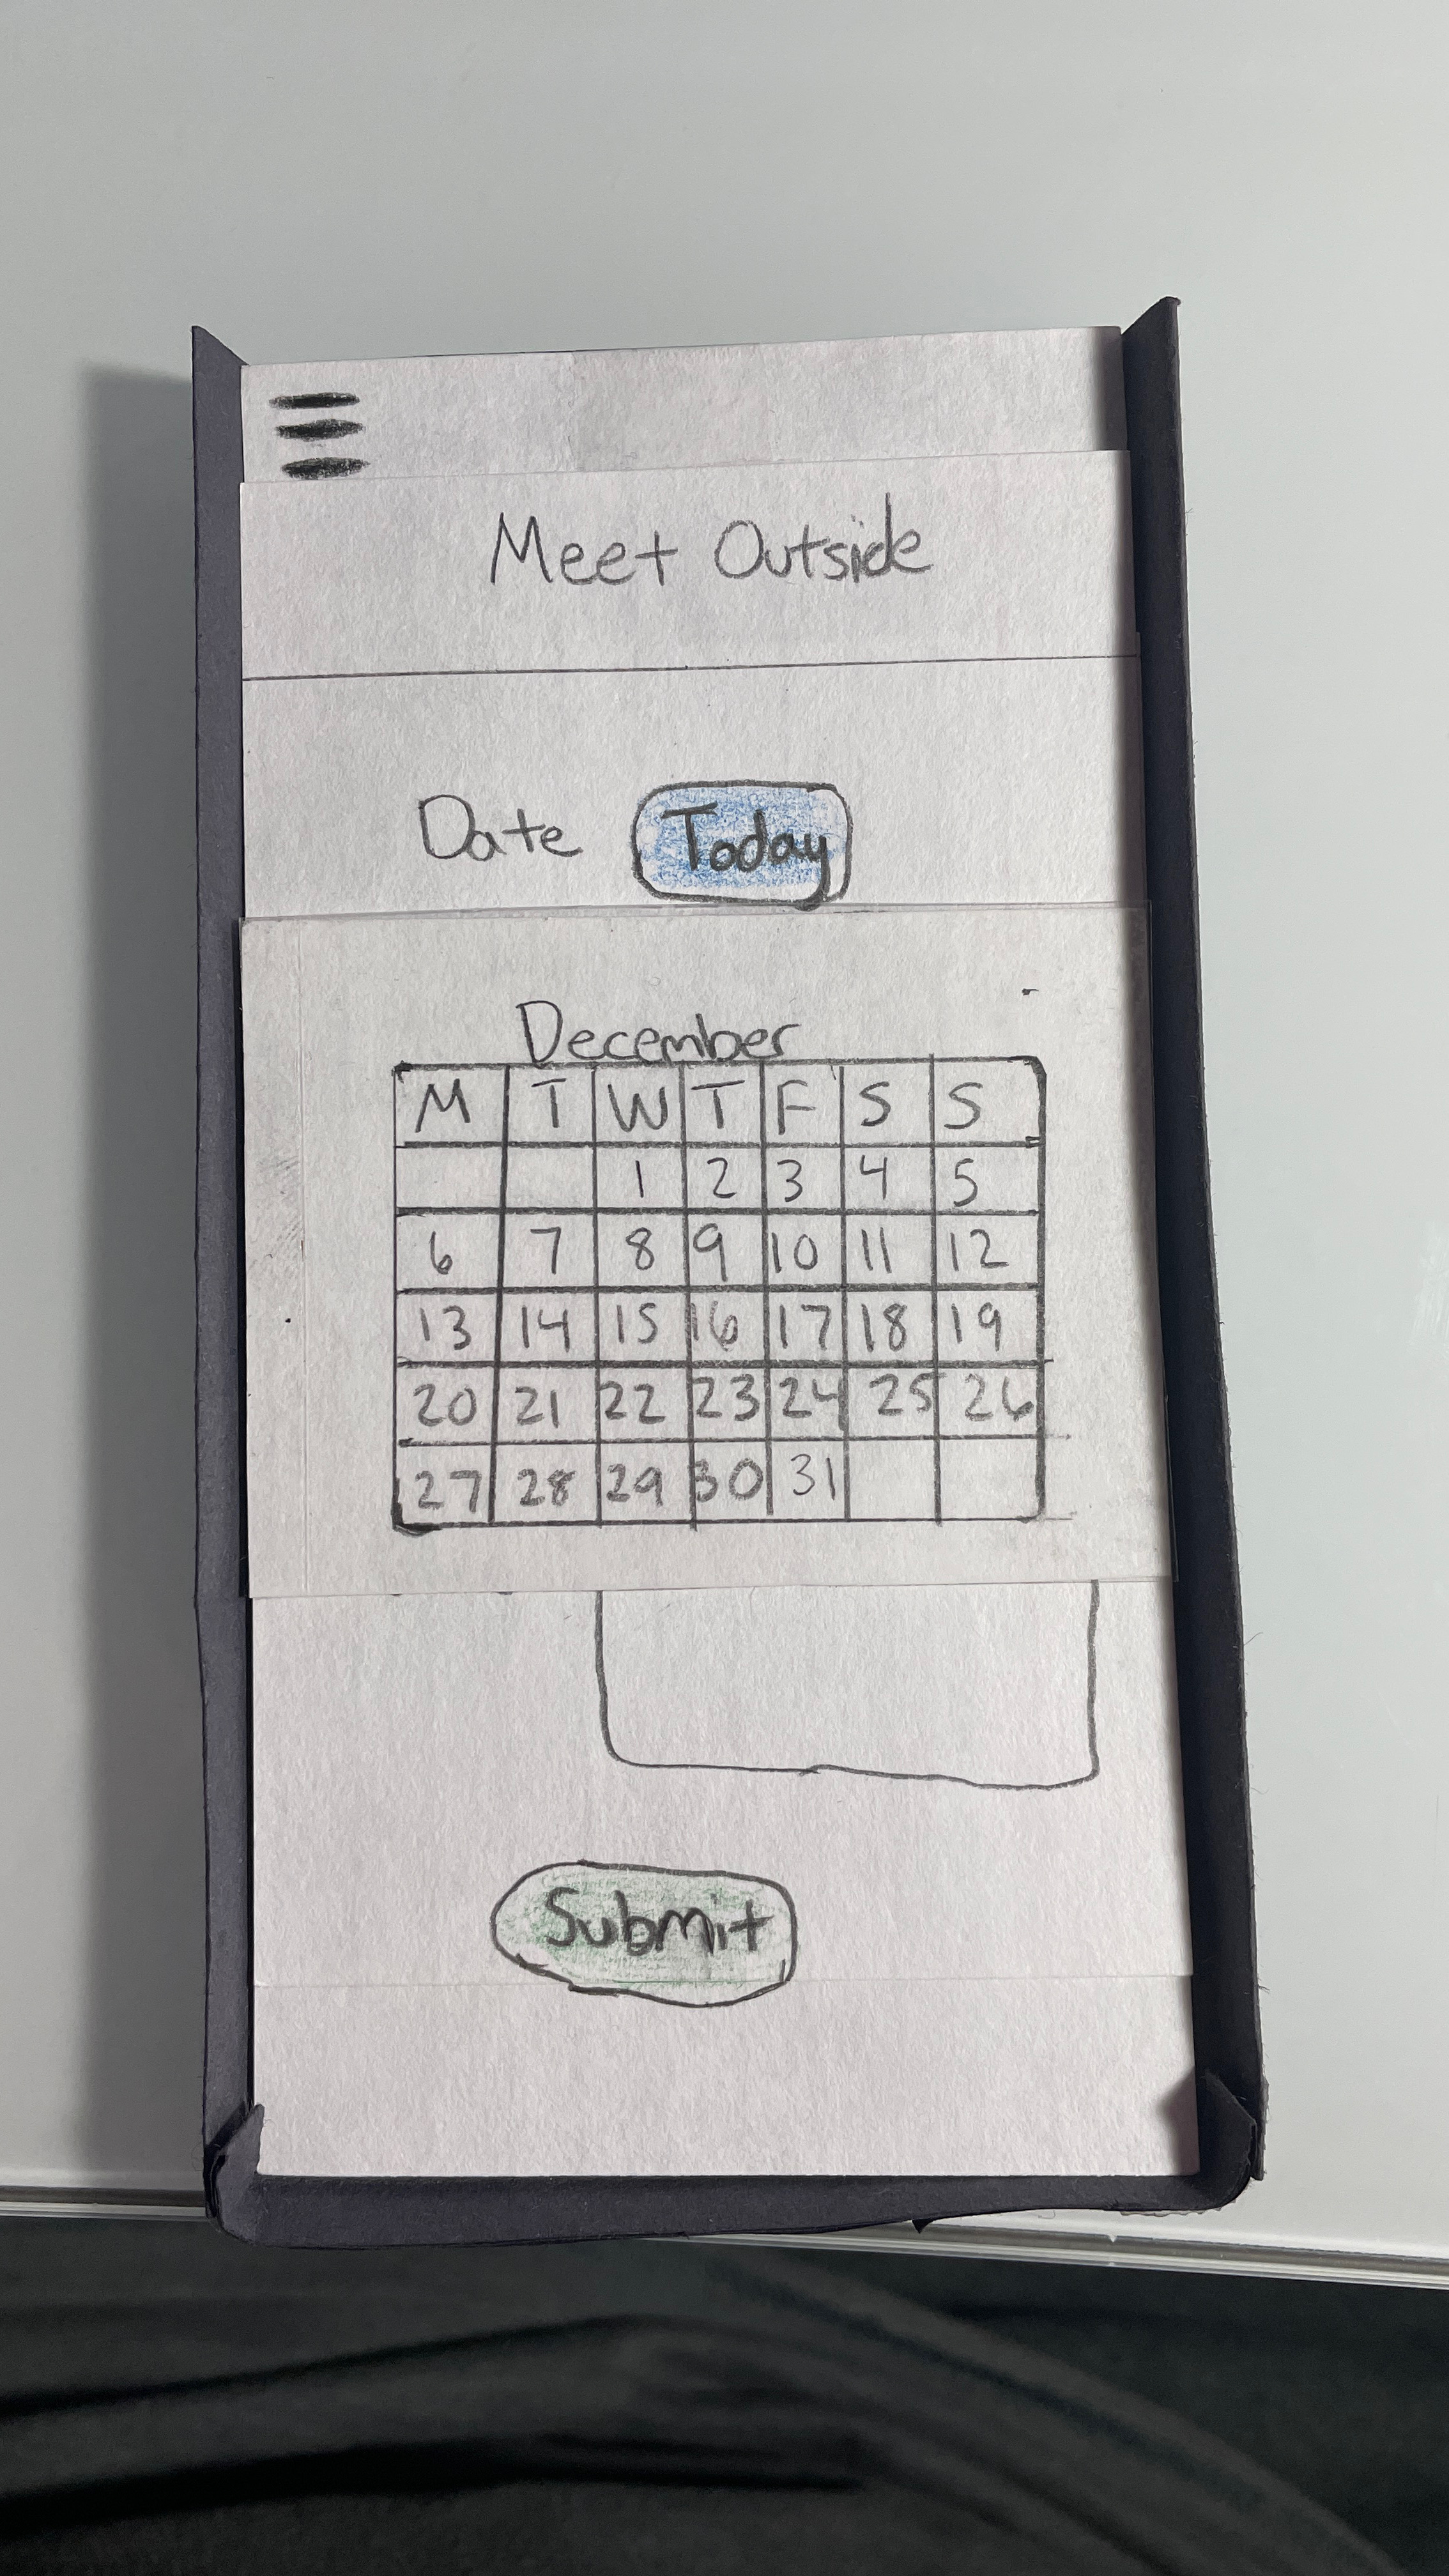 Meet Outside
Date Today
December
M T W T F S S
1 2 3 4 5
6 7 8 9 10 11 12
13 14 15 16 17 18 19
20 21 22 23 24 25 26
27 28 29 30 31
Submit